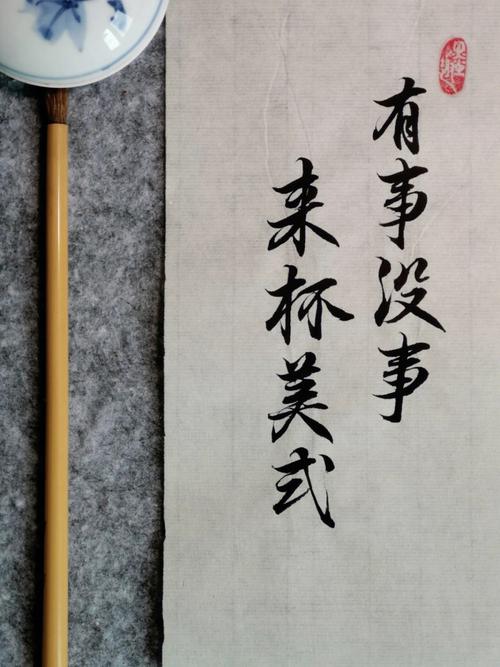 有事没事
来杯美式